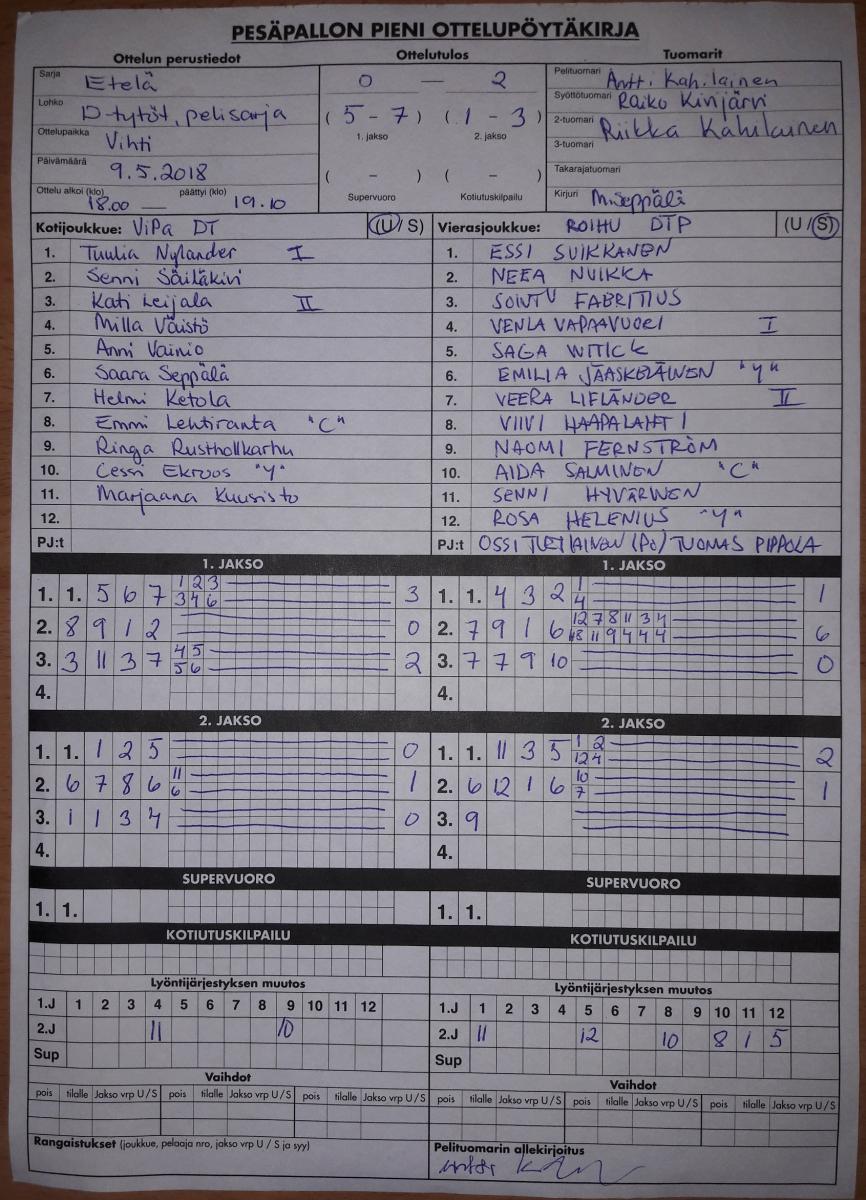 PESÄPALLON PIENI OTTELUPÖYTÄKIRJA
Ottelun perustiedot
Sarja Etelä
Lohko D-tytöt, pelisarja
Ottelupaikka Vihti
Päivämäärä 9.5.2018
Ottelu alkoi (klo) 18.00 — päättyi (klo) 19.10
Ottelutulos
0 — 2
( 5 - 7 ) ( 1 - 3 )
1. jakso 2. jakso
( - ) ( - )
Supervuoro Kotiutuskilpailu
Tuomarit
Pelituomari Antti Kahilainen
Syöttötuomari Raiko Kinjärvi
2-tuomari Riikka Kahilainen
3-tuomari
Takarajatuomari
Kirjuri M.Seppälä
Kotijoukkue: ViPa DT (U/S)
1. Tuulia Nylander I
2. Senni Säiläkivi
3. Kati Leijala II
4. Milla Väistö
5. Anni Vainio
6. Saara Seppälä
7. Helmi Ketola
8. Emmi Lehtiranta "C"
9. Ringa Rusthollkarhu
10. Cessi Ekroos "Y"
11. Marjaana Kuusisto
12.
PJ:t
Vierasjoukkue: ROIHU DTP (U/S)
1. ESSI SUIKKANEN
2. NEEA NUIKKA
3. SOINTU FABRITIUS
4. VENLA VAPAAVUORI I
5. SAGA WITICK
6. EMILIA JÄÄSKELÄINEN "Y"
7. VEERA LIFLÄNDER II
8. VIIVI HAAPALAHTI
9. NAOMI FERNSTRÖM
10. AIDA SALMINEN "C"
11. SENNI HYVÄRINEN
12. ROSA HELENIUS "Y"
PJ:t OSSI TURTIAINEN (PJ) TUOMAS PIPPOLA
1. JAKSO
1. 1. 5 6 7 1 2 3 3
3 4 6
2. 8 9 1 2 0
3. 3 11 3 7 4 5 2
5 6
4.
1. JAKSO
1. 1. 4 3 2 1 1
4
2. 7 9 1 6 12 7 8 11 3 4 6
11 9 4 4 4
3. 7 7 9 10 0
4.
2. JAKSO
1. 1. 1 2 5 0
2. 6 7 8 6 11 1
6
3. 1 1 3 4 0
4.
2. JAKSO
1. 1. 11 3 5 1 2 2
12 4
2. 6 12 1 6 10 1
7
3. 9
4.
SUPERVUORO
1. 1.
SUPERVUORO
1. 1.
KOTIUTUSKILPAILU
KOTIUTUSKILPAILU
Lyöntijärjestyksen muutos
1.J 1 2 3 4 5 6 7 8 9 10 11 12
2.J 11 10
Sup
Lyöntijärjestyksen muutos
1.J 1 2 3 4 5 6 7 8 9 10 11 12
2.J 11 12 10 8 1 5
Sup
Vaihdot
pois tilalle Jakso vrp U/S pois tilalle Jakso vrp U/S pois tilalle Jakso vrp U/S
Vaihdot
pois tilalle Jakso vrp U/S pois tilalle Jakso vrp U/S pois tilalle Jakso vrp U/S
Rangaistukset (joukkue, pelaaja nro, jakso vrp U / S ja syy)
Pelituomarin allekirjoitus